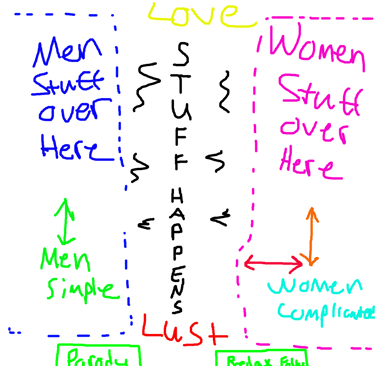 Love
Men
Stuff
over
Here
STUFF HAPPENS
Women
Stuff
over
Here
Men
Simple
Women
Complicated
Lust
Parody